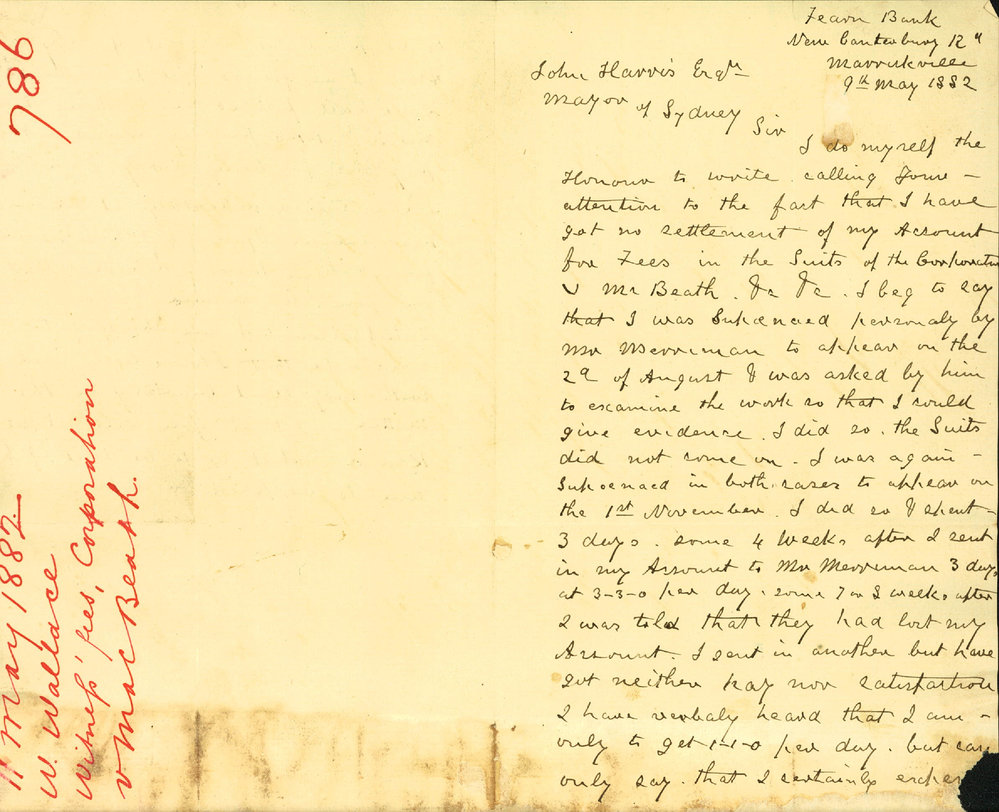 786
11 May 1882
W. Wallace
Witness' fees, Corporation
v MacBeath.
Fearn Bank
New Canterbury Rd
Marrickville
9th May 1882
John Harris Esqr
Mayor of Sydney
Sir
I do myself the
Honour to write calling your
attention to the fact that I have
got no settlement of my Account
for Fees in the Suits of the Corporation
V McBeath. &c &c. I beg to say
that I was Supœnaed personaly by
Mr Merriman to appear on the
2d of August & was asked by him
to examine the work so that I could
give evidence. I did so. the Suits
did not come on. I was again
Supoenaed in both cases to appear on
the 1st November. I did so & spent
3 days. some 4 weeks after I sent
in my Account to Mr Merriman 3 days
at 3-3-0 per day. some 7 or 8 weeks after
I was told that they had lost my
Account. I sent in another but have
got neither pay nor satisfaction
I have verbaly heard that I am
only to get 1-1-0 per day. but can
only say. that I certainly